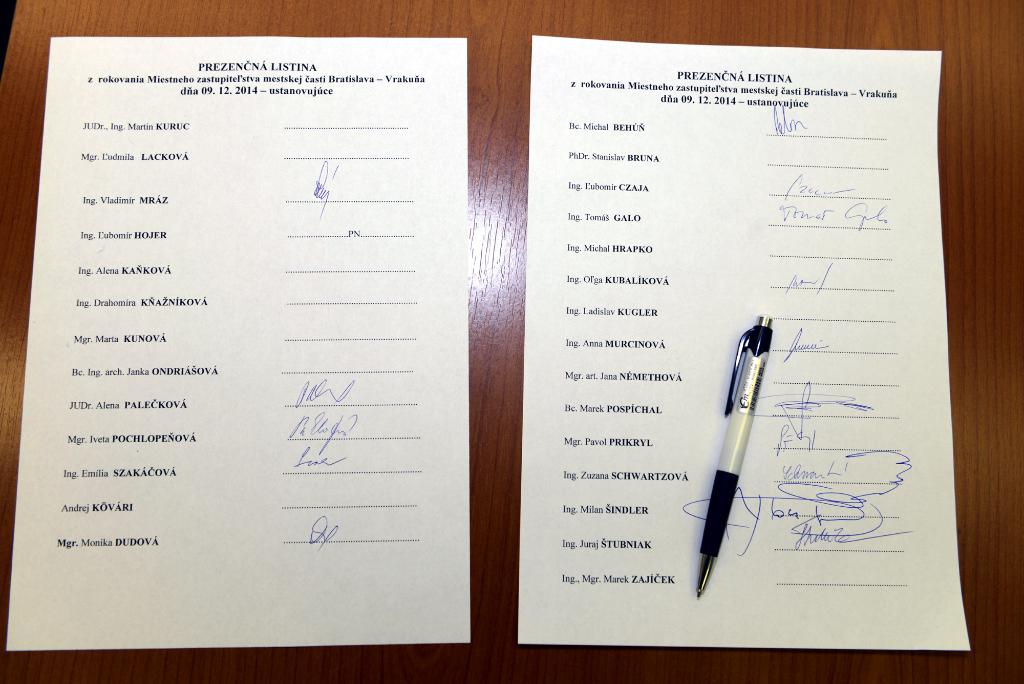 PREZENČNÁ LISTINA
z rokovania Miestneho zastupiteľstva mestskej časti Bratislava – Vrakuňa
dňa 09. 12. 2014 – ustanovujúce
JUDr., Ing. Martin KURUC
Mgr. Ľudmila LACKOVÁ
Ing. Vladimír MRÁZ
Ing. Ľubomír HOJER ........PN........
Ing. Alena KAŇKOVÁ
Ing. Drahomíra KŇAŽNÍKOVÁ
Mgr. Marta KUNOVÁ
Bc. Ing. arch. Janka ONDRIÁŠOVÁ
JUDr. Alena PALEČKOVÁ
Mgr. Iveta POCHLOPEŇOVÁ
Ing. Emília SZAKÁČOVÁ
Andrej KÖVÁRI
Mgr. Monika DUDOVÁ
PREZENČNÁ LISTINA
z rokovania Miestneho zastupiteľstva mestskej časti Bratislava – Vrakuňa
dňa 09. 12. 2014 – ustanovujúce
Bc. Michal BEHÚŇ
PhDr. Stanislav BRUNA
Ing. Ľubomír CZAJA
Ing. Tomáš GALO Tomáš Galo
Ing. Michal HRAPKO
Ing. Oľga KUBALÍKOVÁ
Ing. Ladislav KUGLER
Ing. Anna MURCINOVÁ
Mgr. art. Jana NÉMETHOVÁ
Bc. Marek POSPÍCHAL
Mgr. Pavol PRIKRYL
Ing. Zuzana SCHWARTZOVÁ
Ing. Milan ŠINDLER
Ing. Juraj ŠTUBNIAK
Ing., Mgr. Marek ZAJÍČEK